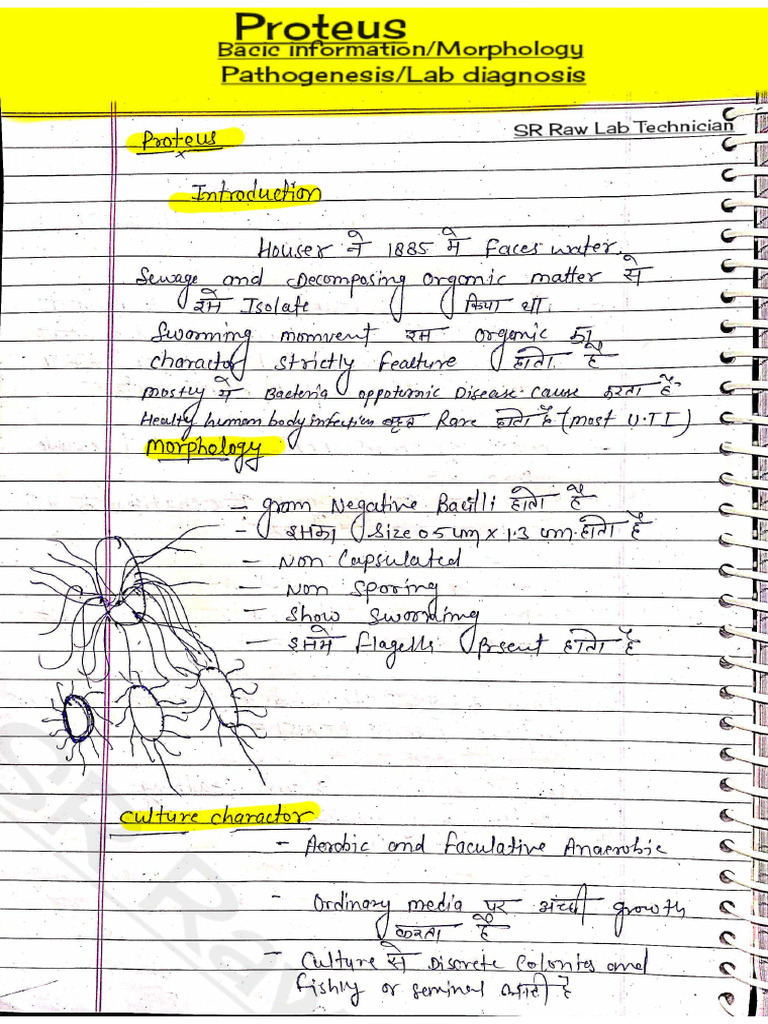 Proteus
Bacic information/Morphology
Pathogenesis/Lab diagnosis
SR Raw Lab Technician
Proteus
Introduction
Houser ने 1885 मे faces water.
Sewage and Decomposing Organic matter से
इसे Isolate किया था.
Sworming momvent इस Organic का
charactor strictly fealture होता है
mostly में Bacteria oppoternic Disease cause करता है
Healty human body infection बहुत Rare होता है (most U.T.I)
Morphology
- gram Negative Bacilli होता है
- इसका Size 0.5 um x 1.3 um होता है
- Non Capsulated
- Non Sporing
- Show Sworming
- इसमे flagells होता है
Culture charactor
- Aerobic and Faculative Anaerobic
- Ordinary media पर अच्छी growth
करता है
- Culture से Discrete Colonies and
fishly or seminal आती है
SR Raw